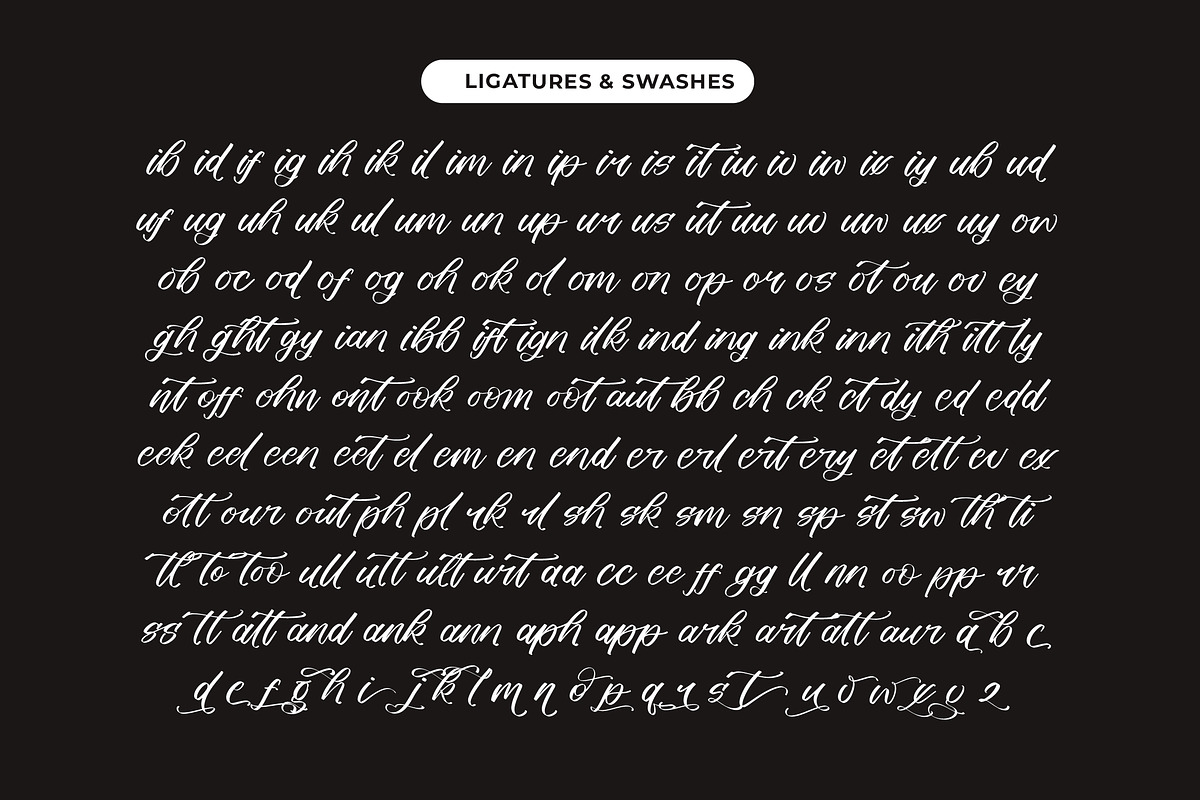 LIGATURES & SWASHES
ib id if ig ih ik il im in ip ir is it iu io iw ix iy ub ud
uf ug uh uk ul um un up ur us ut uu uo uw ux uy ow
ob oc od of og oh ok ol om on op or os ot ou ov ey
gh ght gy ian ibb ift ign ilk ind ing ink inn ith itt ly
nt off ohn ont ook oom oot aut bb ch ck ct dy ed edd
eek eel een eet el em en end er erl ert ery et ett ev ex
ott our out ph pl rk rl sh sk sm sn sp st sw th ti
tl to too ull utt ult urt aa cc ee ff gg ll nn oo pp rr
ss tt att and ank ann aph app ark art att aur a b c
d e f g h i j k l m n o p q r s t u v w x y z